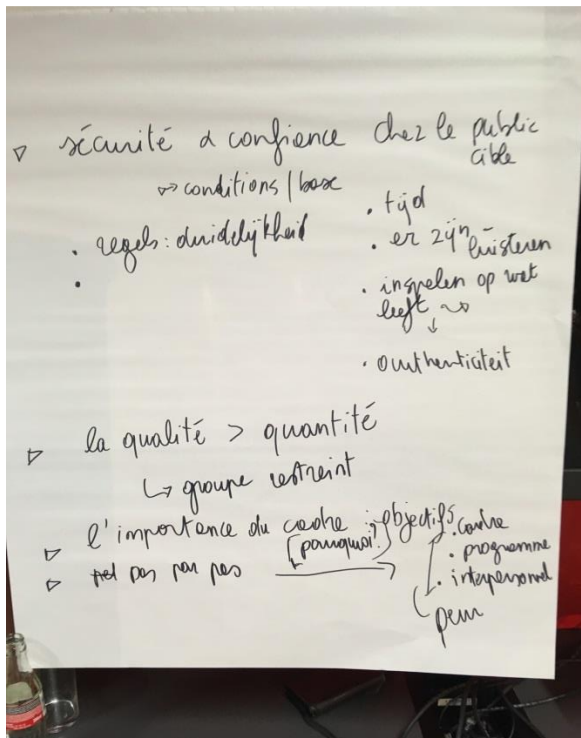 ▷ sécurité & confience chez le public cible
⇒ conditions / base
• regels: duidelijkheid
•
• tijd
• er zijn luisteren
• inspelen op wat leeft ⇝
↓
• authenticiteit
▷ la qualité > quantité
↳ groupe restreint
▷ l'importance du cadre : objectifs
[pourquoi?]
▷ pas par pas →
• cadre
• programme
• interpersonnel
peur